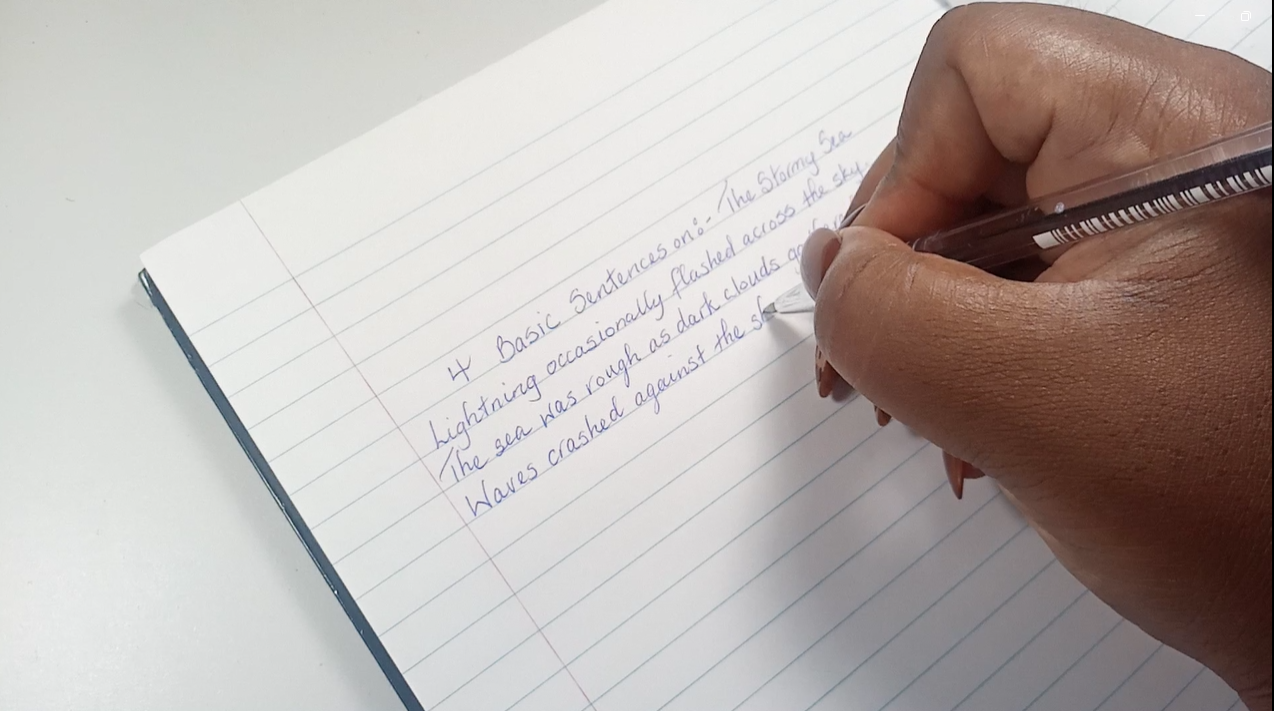 4 Basic Sentences on:- The Stormy Sea
Lightning occasionally flashed across the sky.
The sea was rough as dark clouds
Waves crashed against the